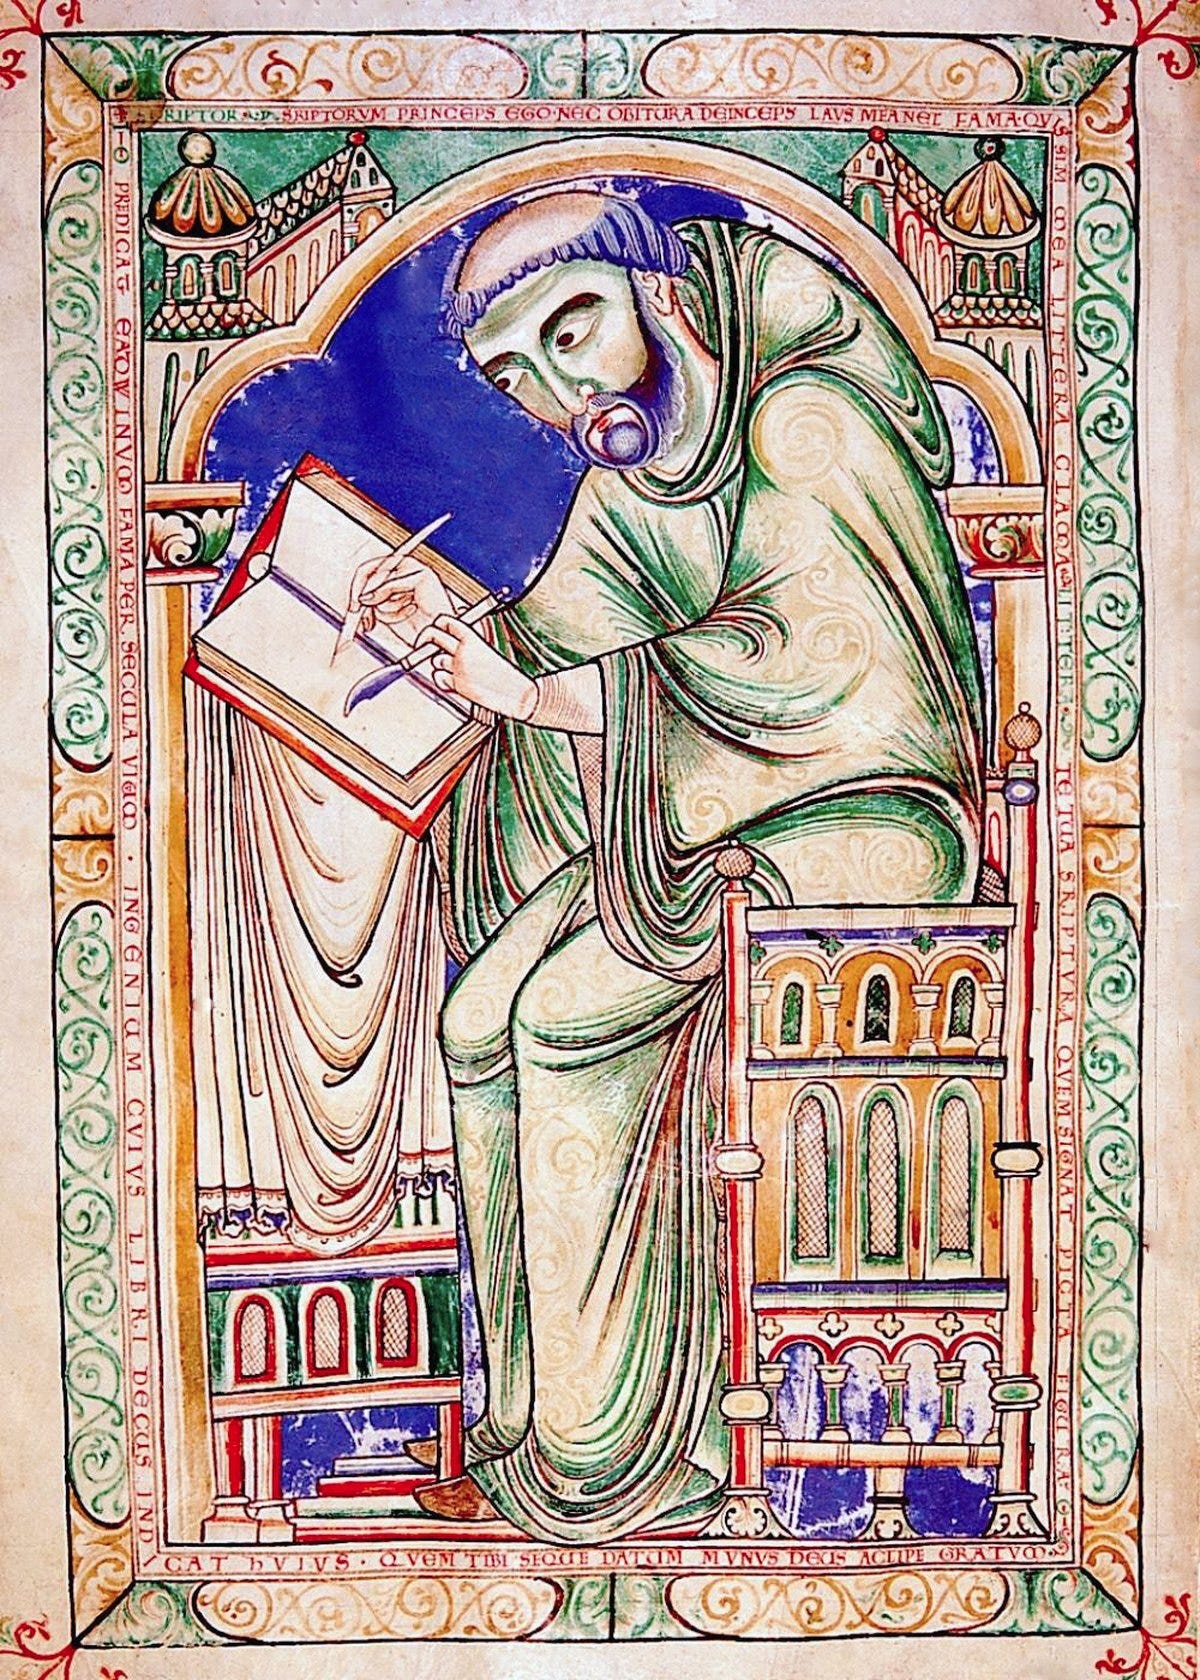 SCRIPTOR SRIPTORVM PRINCEPS EGO·NEC OBITURA DEINCEPS LAVS MEA NEC FAMA·QVIS
SIM MEA LITTERA CLAMA LITTERA TE TUA SRIPTVRA QUEM SIGNAT PICTA FIGURA
PREDICAT EADWINVM FAMA PER SECULA VIVUM · INGENIUM CVIVS LIBRI DECUS INDI
CAT hVIVS · QVEM TIBI SEQUE DATUM MVNVS DEUS ACCIPE GRATVM